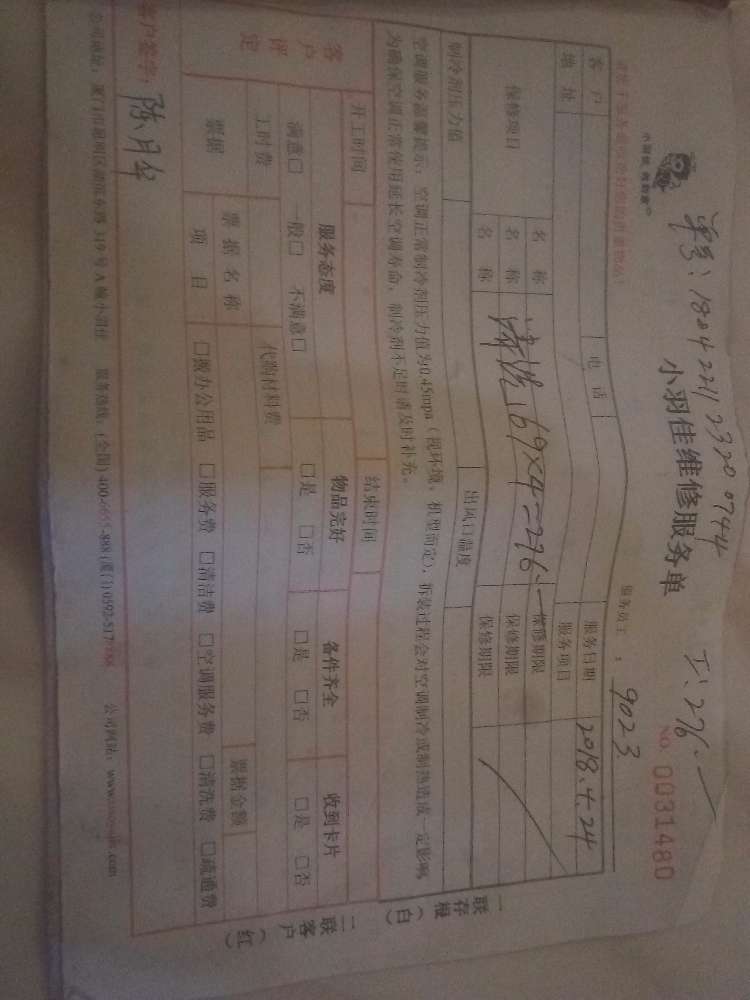 单号: 1804 2212 3320 0744
工: 276.一
小羽佳维修服务单
NO. 0031480
服务员工: 9023
客户
电话
服务日期 2018.4.24
地址
服务项目
保修项目
名称
保修期限
名称
清洗 69×4=276.一
保修期限
名称
保修期限
制冷剂压力值
出风口温度
空调服务温馨提示: 空调正常制冷剂压力值为0.45mpa (视环境、机型而定), 拆装过程会对空调制冷或制热造成一定影响
为确保空调正常使用延长空调寿命, 制冷剂不足时请及时补充。
开工时间
结束时间
客户评定
服务态度
物品完好
备件齐全
收到卡片
满意□ 一般□ 不满意□
□是 □否
□是 □否
□是 □否
工时费
代购材料费
票据
票据名称
票据金额
项目
□搬办公用品 □服务费 □清洁费 □空调服务费 □清洗费 □疏通费
客户签字:
公司地址: 厦门市思明区湖滨东路319号A幢小羽佳 服务热线: (全国) 400-6655-888 (厦门) 0592-517
公司网站: www.
一联存根(白)
二联客户(红)